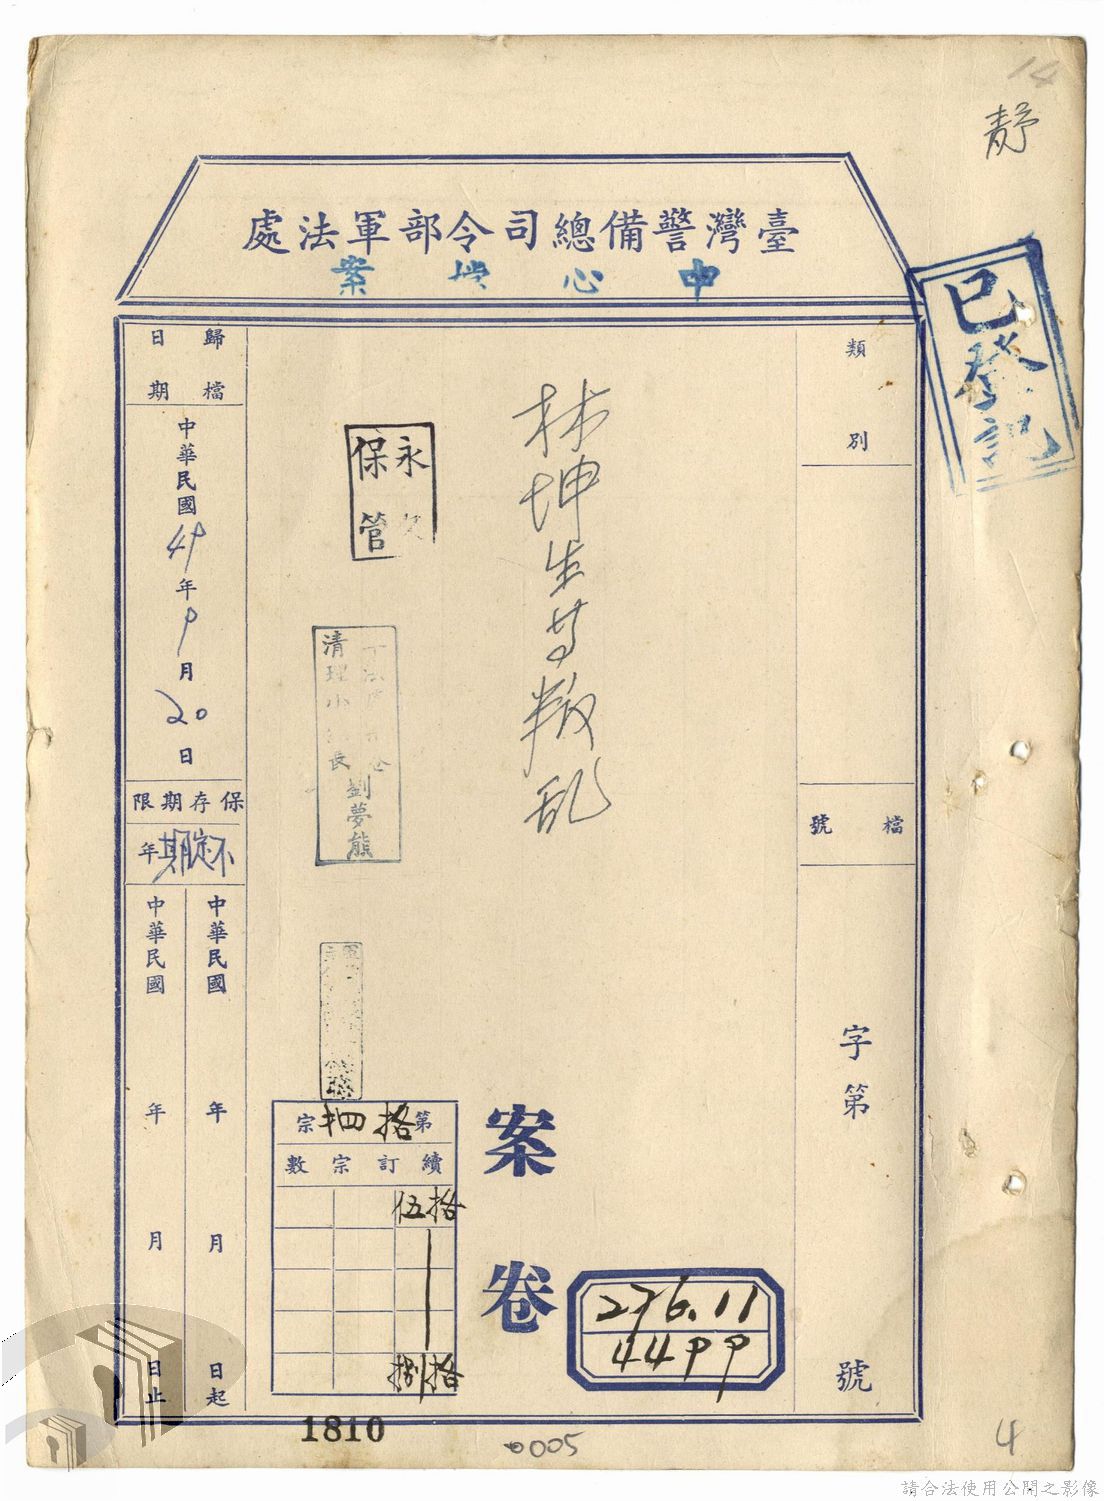 14
靜
臺灣警備總司令部軍法處
中心檔案
已登記
類別
檔號
字第
號
林坤生等叛乱
永久保管
清理小組長
劉夢熊
歸檔日期
中華民國49年9月20日
保存期限
不定期年
中華民國 年 月 日起
中華民國 年 月 日止
第拾四宗
續訂宗數
拾伍
拾捌
案卷
276.11
4499
1810
0005
4
請合法使用公開之影像